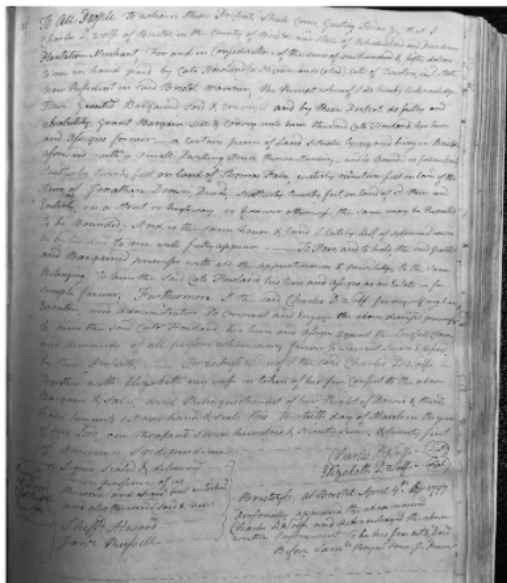 To All People to whom these Presents Shall Come Greeting Know ye that I
Charles D. Wolf of Bristol in the County of Bristol and State of Rhode Island and Providence
Plantation Merchant, For and in Consideration of the sum of one hundred & fifty dollars
to me in hand paid by Cato Howland (a Negroe man so called) late of Taunton, in state
now Resident in said Bristol, the Receipt whereof I do hereby acknowledge
Have Granted Bargained Sold & convey'd and by these Presents do fully and
absolutely Grant Bargain Sell & Convey unto him the said Cato Howland his heirs
and Assigns forever a certain piece of Land Situate lying and being in Bristol
aforesaid with a Small Dwelling House thereon Standing, and is Bounded as follows
Southerly twenty feet on land of Thomas westerly nineteen feet on land of the
Heirs of Jonathan Brown, Northerly twenty feet on land of and
Easterly on a street or highway, or however otherwise the same may be Reputed
to be Bounded. And is the same house & land I lately
to me will fully appear To Have and to hold, the said granted
and Bargained premises with all the appurtenances & privileges to the same
Belonging To him the said Cato Howland his heirs and Assigns as an Estate in fee
Simple forever. Furthermore I the said Charles D. Wolfe for myself my heirs
Executors and administrators, Do Covenant and Engage the above demised premises
to him the said Cato Howland his heirs and Assigns against the lawfull Claims
and demands of all persons whomsoever forever to warrant secure & defend
by these Presents. In witness whereof I the said Charles D. Wolfe
together with Elizabeth my wife in token of her free Consent to the above
Bargain & Sale, and Relinquishment of her Right of Dower & thirds
have hereunto set our hands & seals this Thirtieth day of March in the year
of our Lord, one thousand Seven hundred & Ninety Seven & twenty first
of American Independence
Signed, Sealed & delivered
in presence of us
and also the word
Howard
Russell
Charles D. Wolfe
Elizabeth D. Wolfe
Bristol Ss, at Bristol April 4th AD 1797
Personally appeared the above named
Charles D. Wolfe and acknowledged the above
written Instrument to be his free act & Deed
Before Saml Royal Jus. Peace